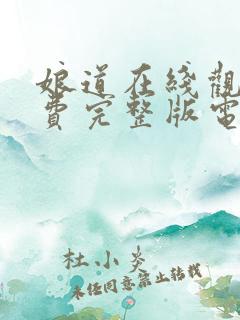 娘道在綫觀
費完整版電
杜小炎
未經同意禁止转载